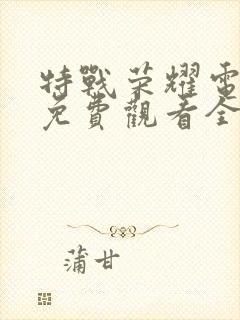 特戰荣耀電
免費觀看全
蒲甘